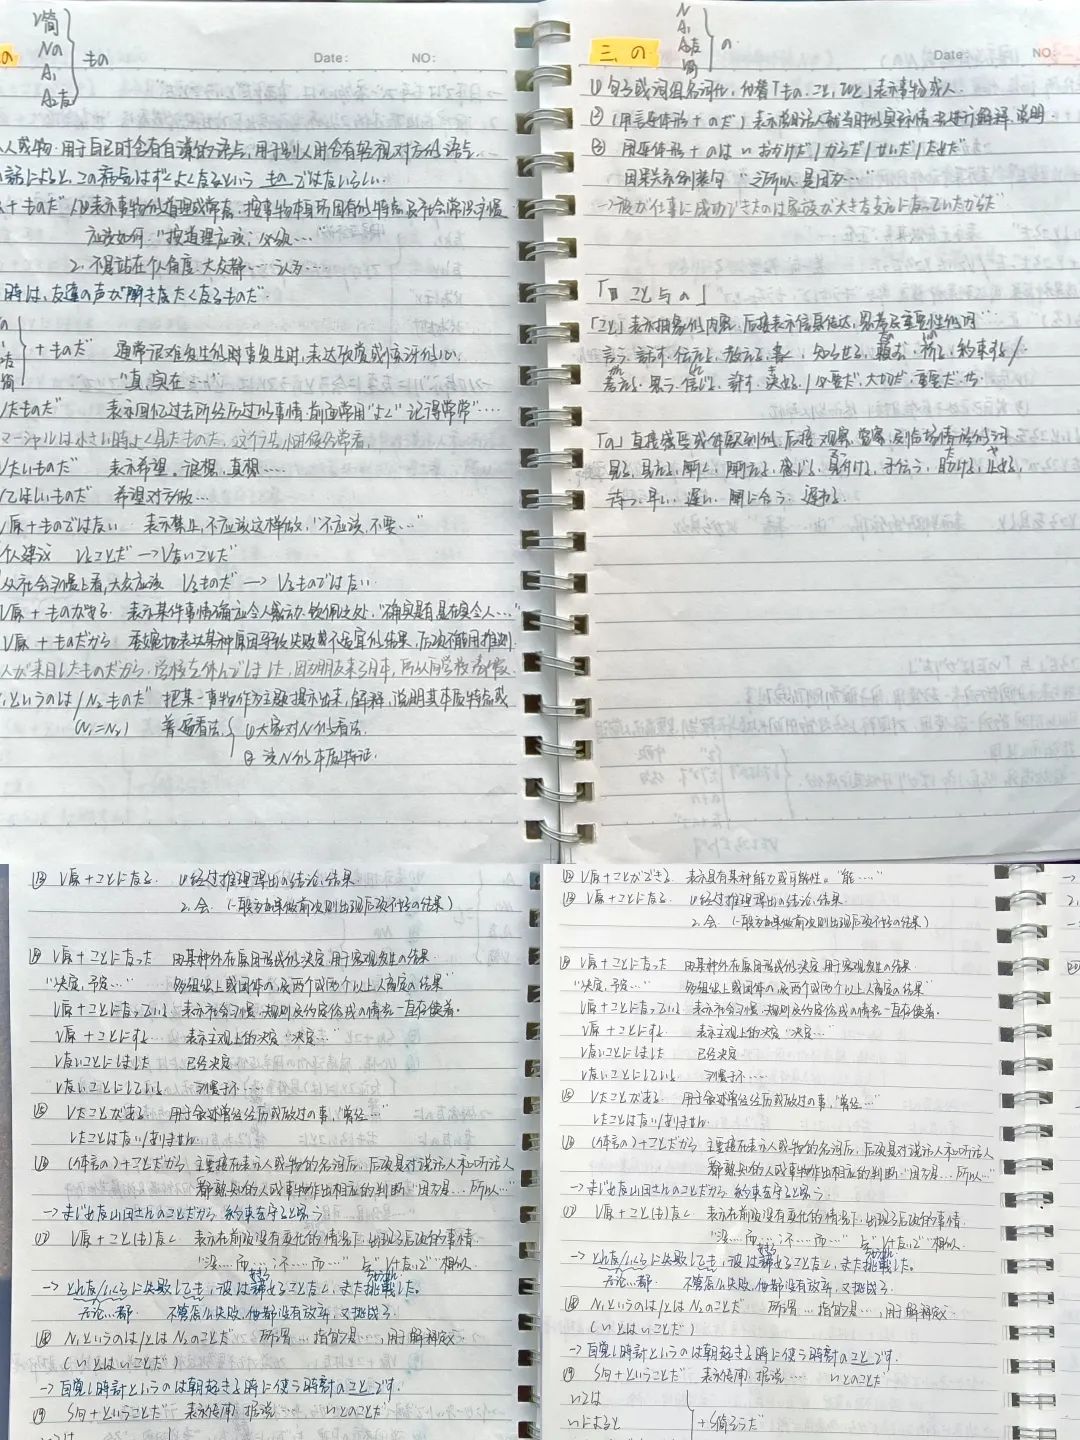 V简
Na
A₁
A₂な
もの
の
Date: NO:
人或物·用于自己时含有自谦的语气,用于别人时含有轻视对方的语气
話によると、この病気はずっとよくなるという ものではないらしい
+ものだ" ⑴表示事物的道理或常态,按事物本身所固有的特点及社会常识习惯
应该如何,"按道理应该,必须…"
2. 不是站在个人角度,大众都…认为…
時は、友達の声が"聞きたくなるものだ"
+ものだ 通常记难发生的时事发生时,表达欣赏或惊讶
"真,实在…"
たものだ" 表示回忆过去所经历过的事情,前面常用"よく"记得常常"…
マーシャルは小さい時よく見たものだ,这个广告,小时候经常看
Vたいものだ" 表示希望。很想,真想……
Vてほしいものだ 希望对方做…
V原+ものではない 表示禁止,不应该这样做,"不应该,不要…"
个人建议 Vることだ"→Vないことだ"
从社会习惯上看,大众应该 Vるものだ"→Vるものではない
V原+ものがある 表示某件事情确应令人感动、钦佩之处,"确实是有显在实令人…"
V原+ものだから 委婉地表达某种原因导致失败或不适宜的结果,后项不能用推测
人が来日したものだから,学校を休んでしました,因为朋友来了日本,所以向学校
というのは/N₂ものだ" 把某一事物作为主题提示出来,解释,说明其本质特点或
(N₁=N₂) 普遍看法 ⑴大家对N的看法
② 该N的本质特征.
三、の
N
A₁
A₂な
简
の
Date: NO:
⑴ 句子或词组名词化,代替「もの、こと、ひと」表示事物或人.
② (用言连体形+のだ) 表示说话人就当时的真实情况进行解释,说明
③ 用连体形+のは い おかげだ/からだ/せいだ/ためだ"
因果关系倒装句 "之所以…是因为…"
→彼が仕事に成功できたのは家族が大きな支えになっていたからだ
「Ⅲ こと 与 の」
「こと」表示抽象的内容,后接表示信息传达,思考及重要性的词
言う、話す、伝える、教える、書く、知らせる、頼む、祈る、約束する/
考える、思う、信じる、許す、決める/必要だ、大切だ、重要だ 等
「の」直接感受或体验到的,后接 观察,觉察,到临场情报的词
見る、見える、聞く、聞こえる、感じる、見付ける、手伝う、助ける、止める、
待つ、早い、遅い、間に合う、遅れる
⑬ V原+ことになる ⑴经过推理得出的结论,结果
2. 会 (一般方如果做前项则出现后项不好的结果)
⑭ V原+ことになった 由某种外在原因形成的决定,用于客观发生的结果
"决定,予定…" 多组织上或团体の,或两个或两个以上人商定の结果"
V原+ことになっている 表示社会习惯,规则及约定俗成の情况一直存续着.
V原+ことにする 表示主观上的决定 "决定…"
Vないことにしました 已经决定
Vないことにしている 习惯于不…
⑮ Vたことがある 用于叙述曾经经历或做过の事,"曾经…"
Vたことはない/ありません
⑯ (体言の)+ことだから 主要接在表示人或物的名词后,后项是对说话人和听话人
都熟知的人或事物作出相应的判断"因为是…所以…"
→まじめな山田さんのことだから 約束を守ると思う
⑰ V原+こと(も)なく 表示在前项没有变化的情况下,出现了后项的事情.
"没…而…;不…而…" 与"Vないで"相似
→どんなにいくら失敗しても,彼は諦めることなく、また挑戦した。
无论…都 不管怎么失败,他都没有放弃,又挑战了
⑱ N₁というのは/とは N₂のことだ" 所谓…指的是…,用于解释定义
(いとはいことだ)
→目覚し時計というのは朝起きる時に使う時計のことです.
⑲ S句+ということだ" 表示传闻,据说… いとのことだ
⑫ V原+ことができる 表示具有某种能力或可能性。"能……"
⑬ V原+ことになる ⑴经过推理得出の结论,结果
2. 会 (一般方如果做前项则出现后项不好の结果)
⑭ V原+ことになった 由某种外在原因形成的决定,用于客观发生の结果.
"决定,予定…" 多组织上或团体の,或两个或两个以上人商定の结果"
V原+ことになっている 表示社会习惯,规则及约定俗成の情况一直存续着.
V原+ことにする 表示主观上的决定 "决定…"
Vないことにしました 已经决定
Vないことにしている 习惯于不…
⑮ Vたことがある 用于叙述曾经经历或做过の事,"曾经…"
Vたことはない/ありません
⑯ (体言の)+ことだから 主要接在表示人或物的名词后,后项是对说话人和听话人
都熟知的人或事物作出相应的判断"因为是…所以…"
→まじめな山田さんのことだから 約束を守ると思う
⑰ V原+こと(も)なく 表示在前项没有变化的情况下,出现了后项的事情.
"没…而…;不…而…" 与"Vないで"相似.
→どんなにいくら失敗しても,彼は諦めることなく、また挑戦した。
无论…都 不管怎么失败,他都没有放弃,又挑战了
⑱ N₁というのは/とは N₂のことだ" 所谓…指的是…,用于解释定义
(いとはいことだ)
→目覚し時計というのは朝起きる時に使う時計のことです.
⑲ S句+ということだ" 表示传闻,据说… いとのことだ
いでは
いによると
+S简そうだ"